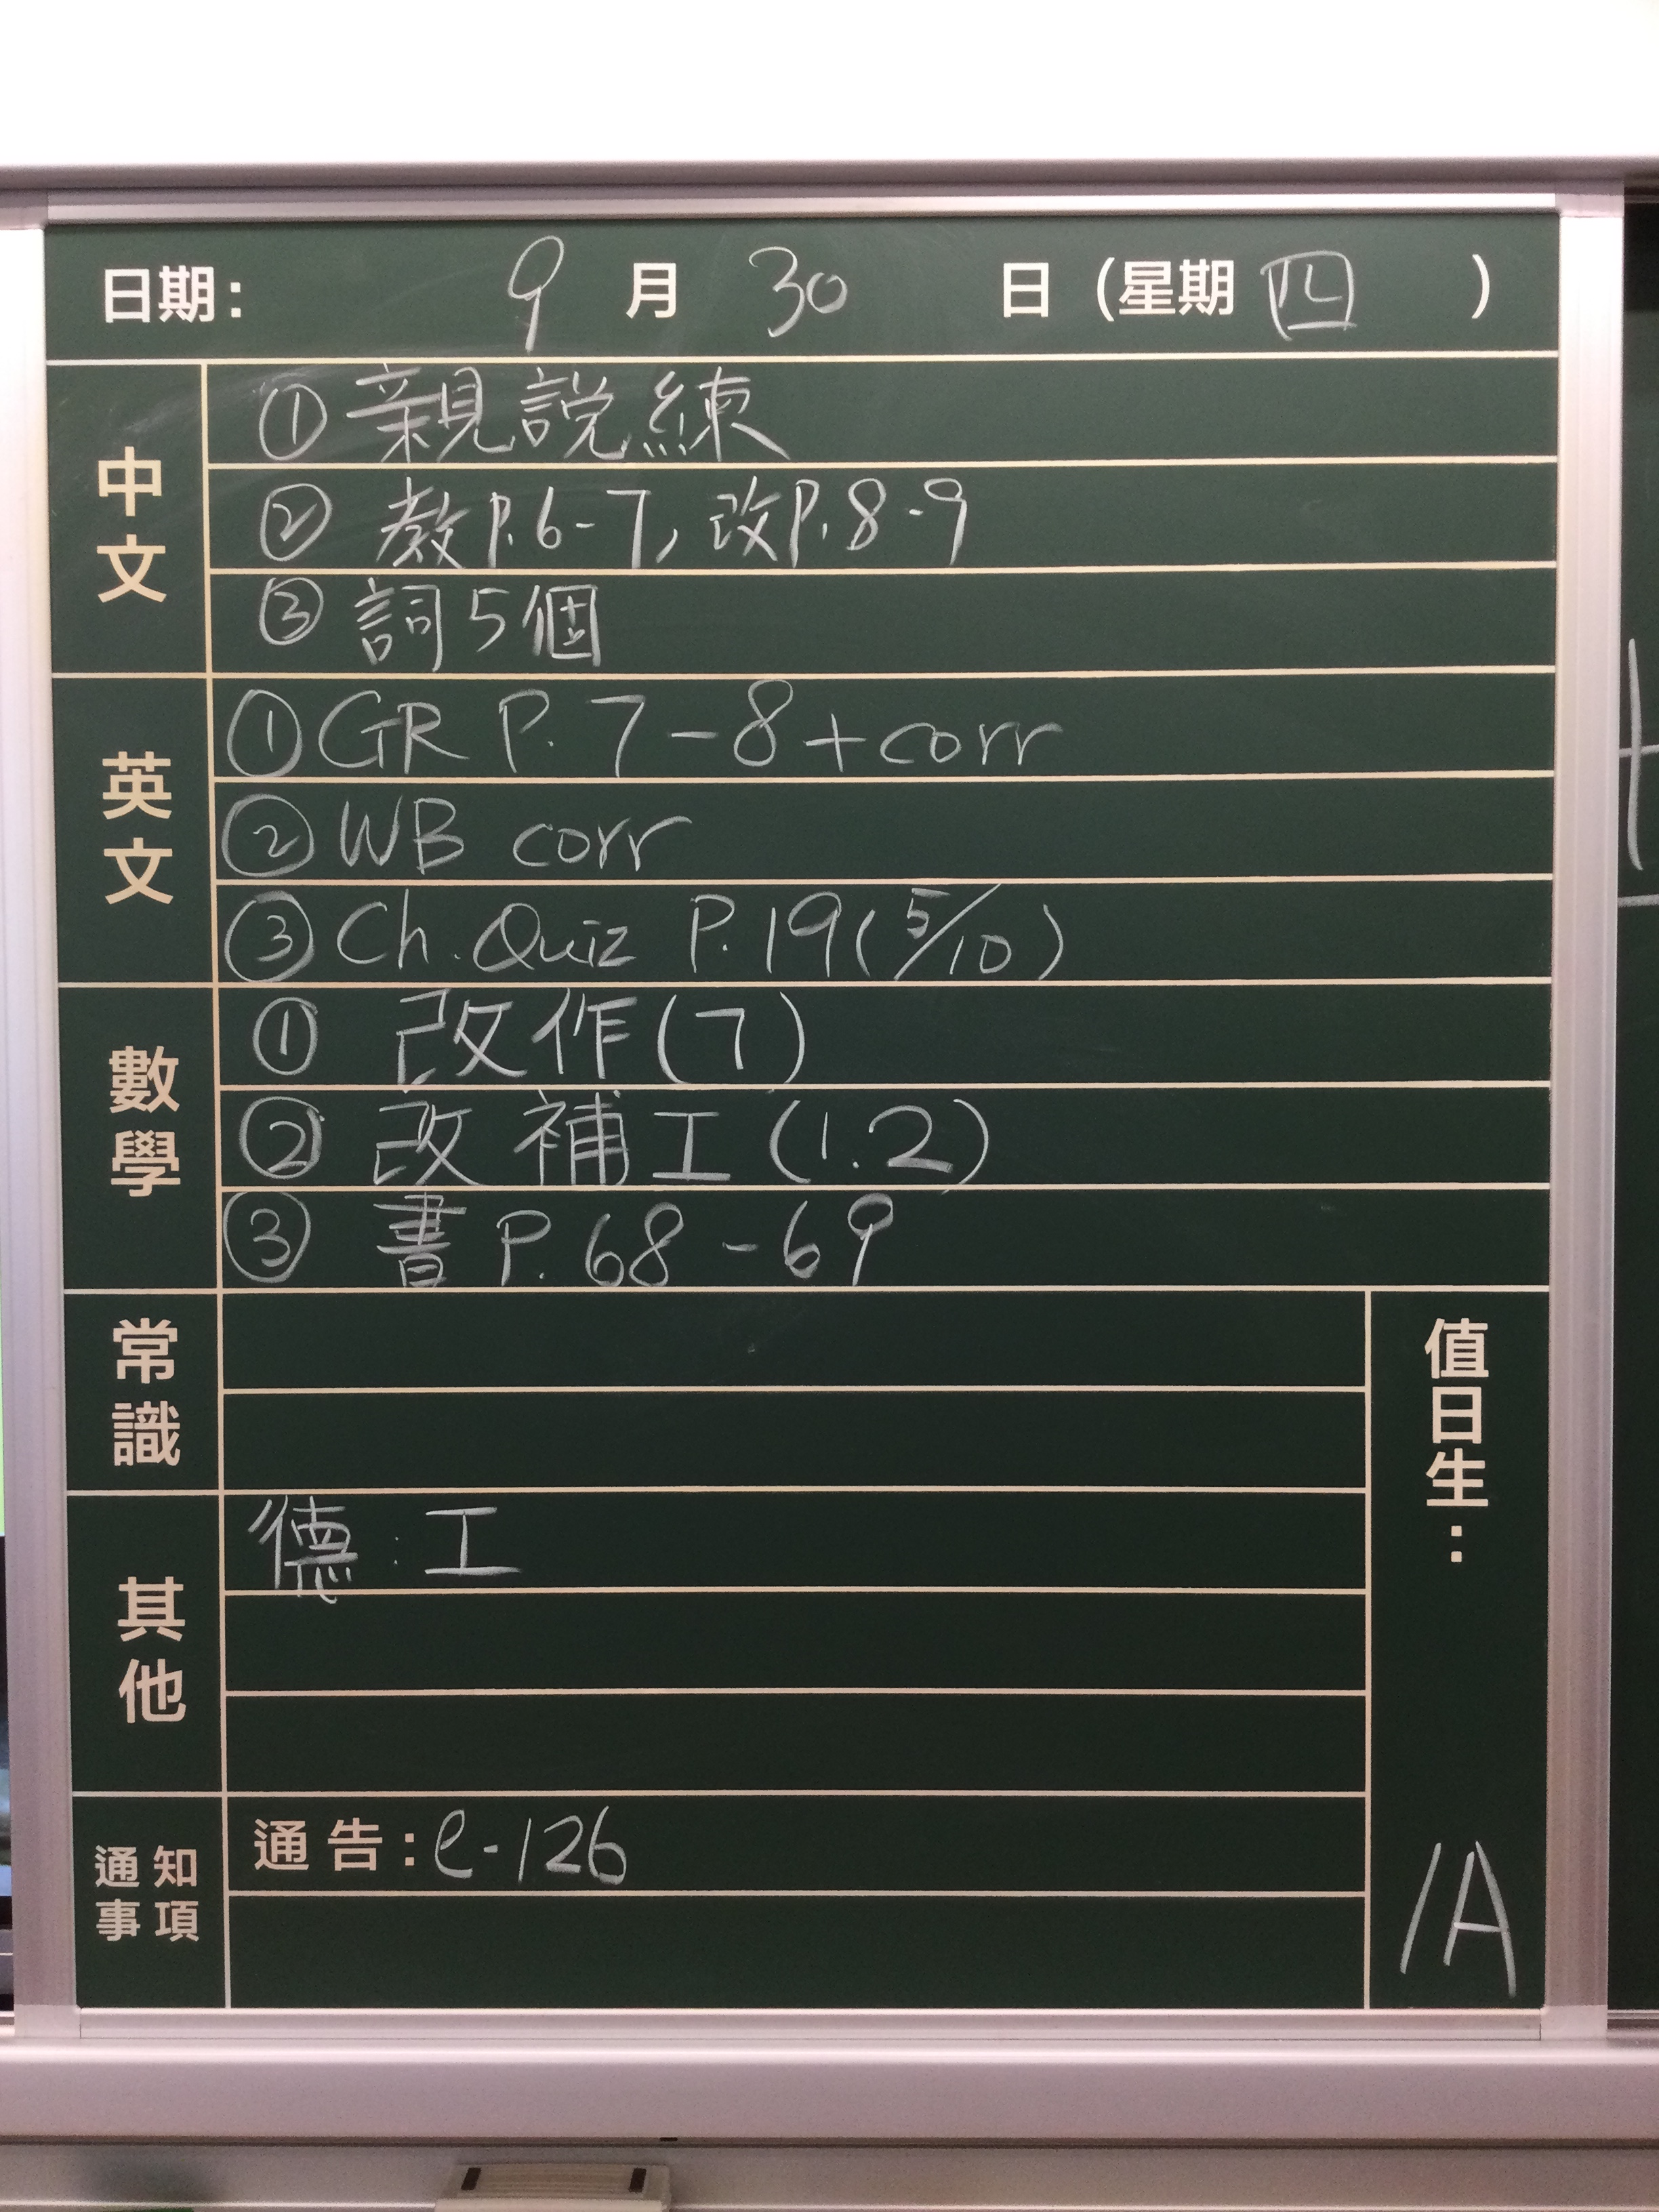 日期： 9 月 30 日（星期 四 ）
中文
① 親說練
② 教P.6-7, 改P.8-9
③ 詞5個
英文
① GR P.7-8+corr
② WB corr
③ Ch.Quiz P.19(5/10)
數學
① 改作(7)
② 改補工(1.2)
③ 書P.68-69
常識
其他
德：工
通知事項
通告：e-126
值日生：
1A